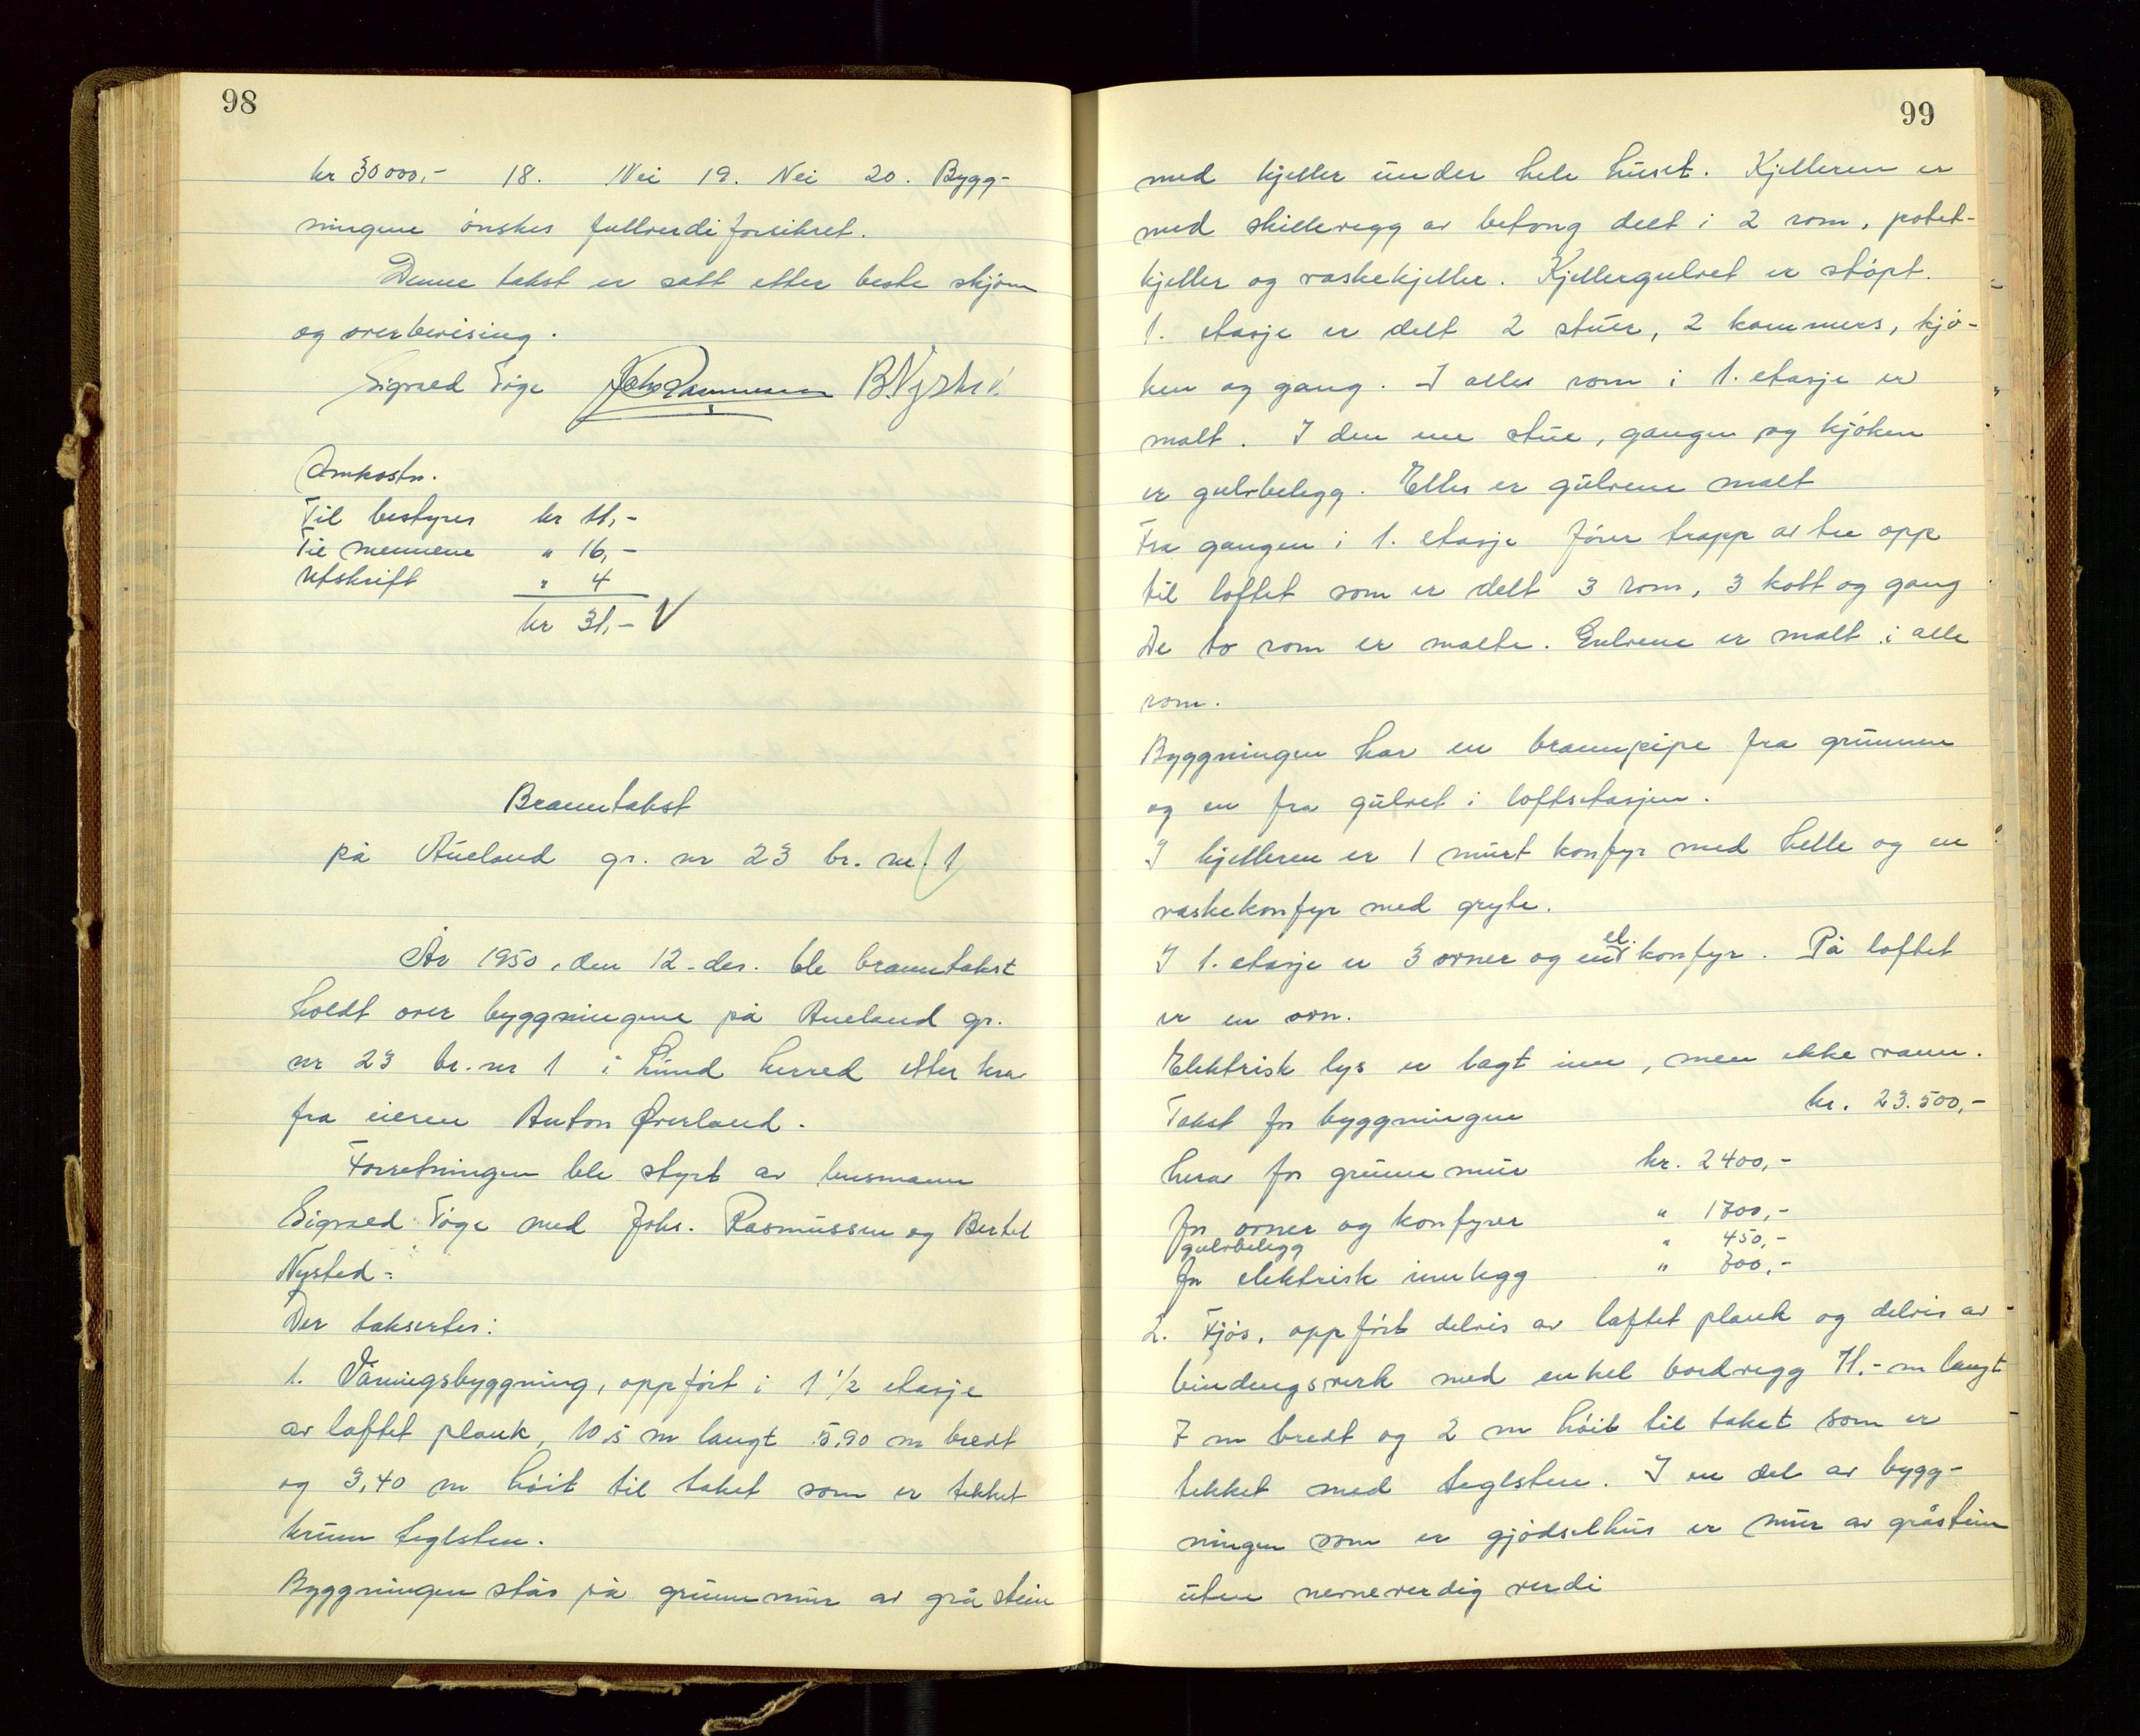 98
kr 30000,- 18. Nei 19. Nei 20. Bygg-
ningene ønskes fullverdiforsikret.
Denne takst er satt etter beste skjønn
og overbevising.
Sigvald Tøge Johs Rasmussen B Nysted
Omkostn.
Til bestyrer kr 11,-
Til mennene " 16,-
Utskrift " 4
kr 31,- V
Branntakst
på Aueland gr. nr 23 br. nr. 1
År 1950, den 12. des. ble branntakst
holdt over byggningene på Aueland gr.
nr 23 br. nr 1 i Lund herred etter krav
fra eieren Anton Øverland.
Forretningen ble styrt av lensmann
Sigvald Tøge med Johs. Rasmussen og Bertel
Nysted.
Der taksertes:
1. Våningsbyggning, oppført i 1 1/2 etasje
av laftet plank, 10,5 m langt 5,90 m bredt
og 3,40 m høit til taket som er tekket
krum teglsten.
Byggningen står på grunnmur av grå stein
99
med kjeller under hele huset. Kjelleren er
med skillevegg av betong delt i 2 rom, potet-
kjeller og vaskekjeller. Kjellergulvet er støpt.
1. etasje er delt 2 stuer, 2 kammers, kjø-
ken og gang. I alle rom i 1. etasje er
malt. I den ene stue, gangen og kjøken
er gulvbelegg. Elles er gulvene malt
Fra gangen i 1. etasje fører trapp av tre opp
til loftet som er delt 3 rom, 3 kott og gang
De to rom er malte. Gulvene er malt i alle
rom.
Byggningen har en brannpipe fra grunnen
og en fra gulvet i loftsetasjen.
I kjelleren er 1 murt komfyr med helle og en
vaskekomfyr med gryte.
I 1. etasje er 3 ovner og en el. komfyr. På loftet
er en ovn.
Elektrisk lys er lagt inn, men ikke vann.
Takst for byggningen kr. 23.500,-
herav for grunnmur kr. 2400,-
for ovner og komfyrer " 1700,-
gulvbelegg " 450,-
for elektrisk innlegg " 700,-
2. Fjøs, oppført delvis av laftet plank og delvis av
bindingsverk med enkel bordvegg 11.- m langt
7 m bredt og 2 m høit til taket som er
tekket med teglsten. I en del av bygg-
ningen som er gjødselhus er mur av gråstein
uten nevneverdig verdi